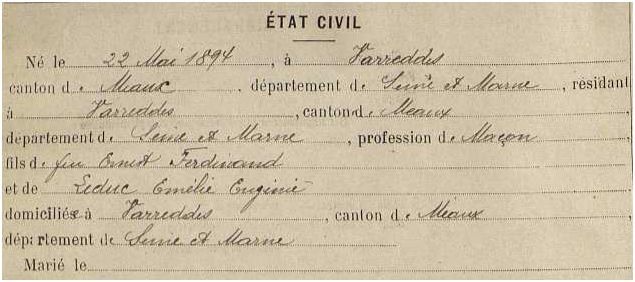 ÉTAT CIVIL
Né le 22 Mai 1894, à Varreddes
canton de Meaux, département de Seine et Marne, résidant
à Varreddes, canton de Meaux
département de Seine et Marne, profession de Maçon
fils de feu Ernest Ferdinand
et de Leduc Emélie Eugénie
domiciliés à Varreddes, canton de Meaux,
département de Seine et Marne
Marié le